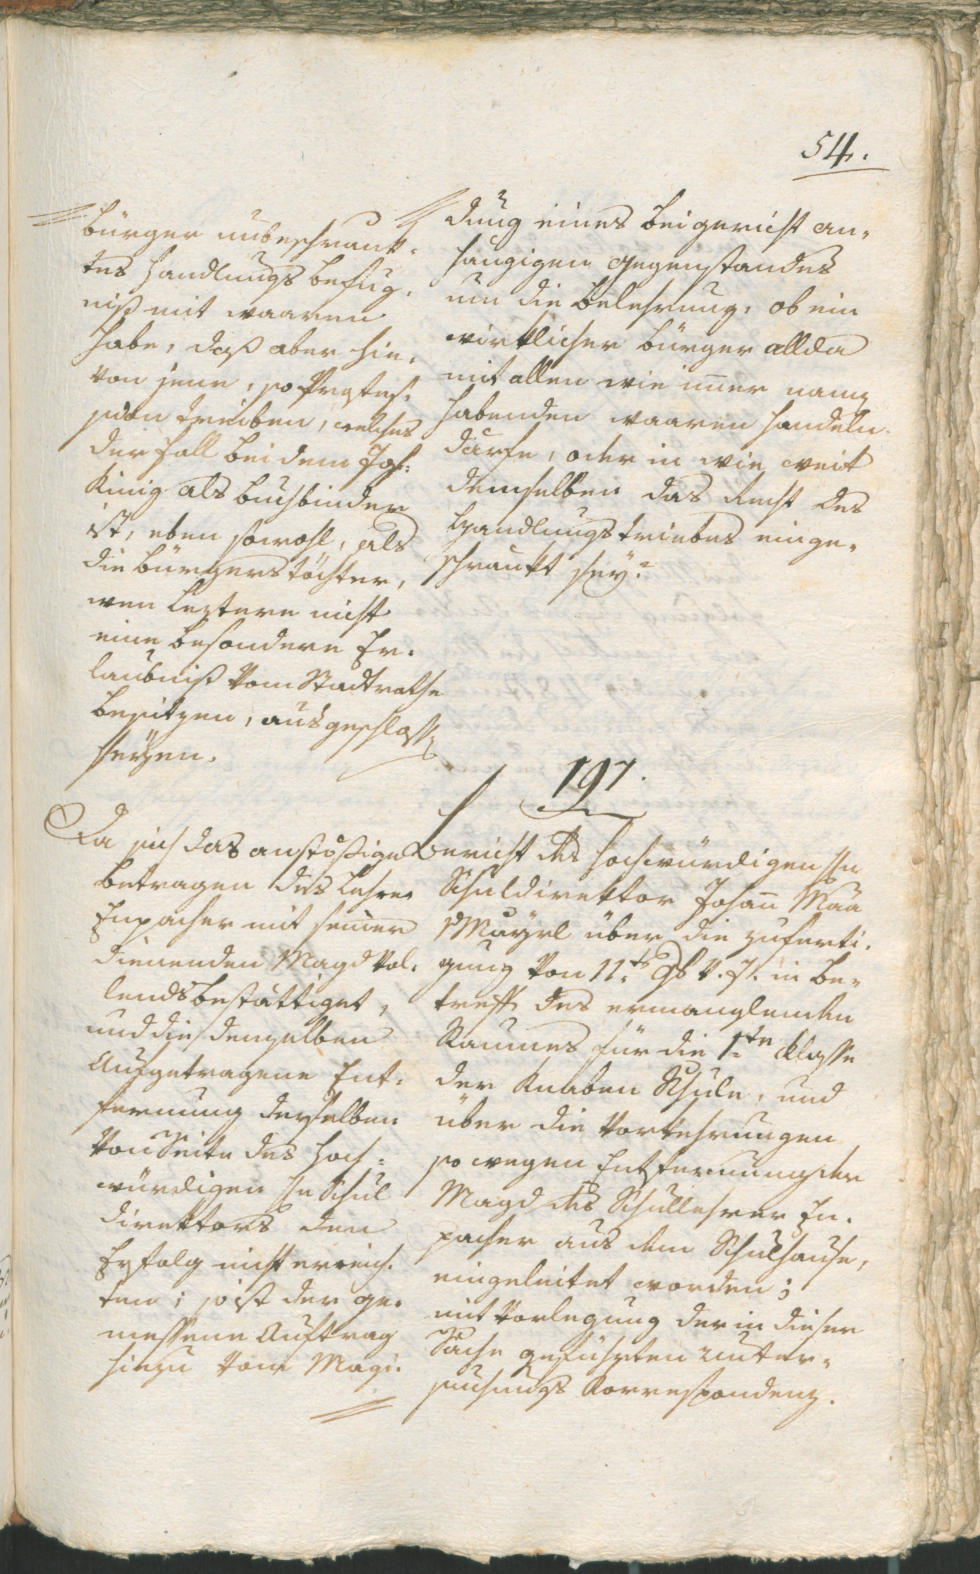 54.
bürger unbeschränk-
tes Handlungs befug-
niß mit waaren
habe, daß aber hie-
von jene, so Profes-
sion treiben, welches
der fall bei dem Jos:
König als buchbinder
ist, eben sowohl, als
die bürgerstöchter,
wen leztere nicht
eine besondere Er-
laubniß vom Stadtrathe
besitzen, ausgeschlossen
seyen.
dung eines bei gericht an-
hängigen gegenstandes
um die belehrung, ob ein
wirklicher bürger allda
mit allen wie immer namen
habenden waaren handeln
dürfe, oder in wie weit
demselben das Recht des
Handlungstriebes einge-
schränkt sey?
197.
Da sich das anstößige
betragen des Lehrer
Enpacher mit seiner
dienenden Magd vol-
lends bestättiget,
und die demselben
Aufgetragene Ent-
fernung derselben
von Seite des Hoch-
würdigen H Schul
direktors den
Erfolg nicht erreich-
ten; so ist der ge-
messene Auftrag
hiezu vom Magi-
Bericht des Hochwürdigen H
Schuldirektor Johann
Mayrl über die zuferti-
gung von 11.t v. J. in be-
treff des ermanglenden
Raumes für die 1.te klasse
der Knaben Schule, und
über die Vorkehrungen
so wegen Entfernung der
Magd des Schullehrer En-
pacher aus dem Schulhause,
eingeleitet worden;
mit Vorlegung der in dieser
Sache geführten unter-
suchungs Korrespondenz.